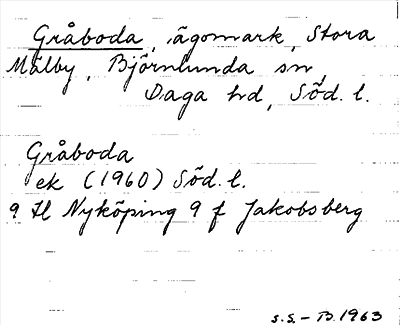 Gråboda, ägomark, Stora
Mälby, Björnlunda sn,
Daga hd, Söd. l.
Gråboda
ek (1960) Söd. l.
9 H Nyköping 9 f Jakobsberg
S.S. – B. 1963